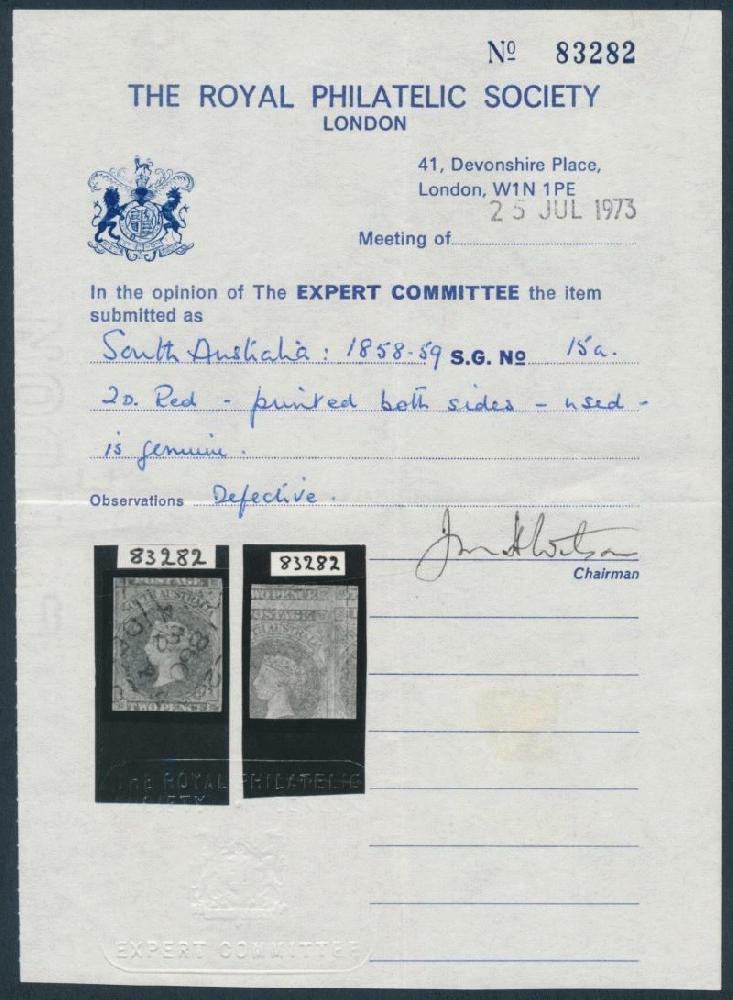 Nº 83282
THE ROYAL PHILATELIC SOCIETY
LONDON
41, Devonshire Place,
London, W1N 1PE
25 JUL 1973
Meeting of
In the opinion of The EXPERT COMMITTEE the item
submitted as
South Australia: 1858-59 S.G. Nº 15a.
2D. Red - printed both sides - used -
is genuine.
Observations Defective.
Chairman
83282
83282
POSTAGE
SOUTH AUSTRALIA
TWO PENCE
TWO PENCE
POSTAGE
AUSTRALIA
THE ROYAL PHILATELIC
SOCIETY
EXPERT COMMITTEE